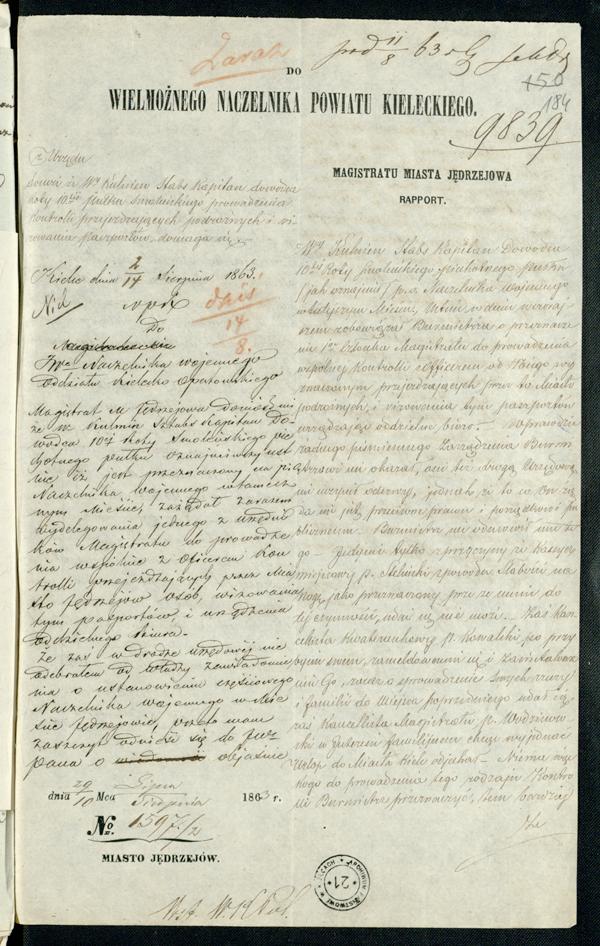 Zaraz
prod 11/8 63 r
150
184
DO
WIELMOŻNEGO NACZELNIKA POWIATU KIELECKIEGO.
9839
MAGISTRATU MIASTA JĘDRZEJOWA
RAPPORT.
z Urzędu
Donosi że Wy Kulmien Stabs Kapitan dowódca
Roty 10tej Pułku Smoleńskiego prowadzenia
Kontroli przejeżdżających podróżnych i wi
zowania paszportów, domaga się
Kielce dnia 2/14 Sierpnia 1863.
dniś
14
8.
Do
JWo Naczelnika wojennego
Oddziału Kielecko Opatowskiego
Magistrat M. Jędrzejowa doniósł mi
że W. Kulmin Sztabs Kapitan Do-
wódca 10tej Roty Smoleńskiego pie
chotnego pułku oznajmiwszy ust
nie iż jest przeznaczony na p.o.
Naczelnika wojennego w tamecz
nym Miescie, zażądał zarazem
wydelegowania jednego z urzędni
ków Magistratu do prowadze
nia wspólnie z Officerem Kon
trolli przejeżdżających przez Mia
sto Jędrzejów osób, wizowania
tym pasportów, i urządzenia
oddzielnego biura.
Że zaś w drodze urzędowej nie
odebrałem od władzy zawiadomie
nia o ustanowieniu częściowego
Naczelnika wojennego w Mie
ście Jędrzejowie, przeto mam
zaszczyt odnieść się do JW
Pana o objaśnie
Wy Kulmien Stabs Kapitan Dowódca
10tej Roty Smoleńskiego Piechotnego Pułku
(jak oznajmił) p.o. Naczelnika Wojennego
w tutejszym Mieście, Ustnie w dniu wczoraj
szym zobowiązał Burmistrza o przeznacze
nie 1go Członka Magistratu do prowadzenia
wspólnej Kontrolli z Officerem od Niego wy
znaczonym przejeżdżających przez to Miasto
podróżnych, i wizowania tym paszportów
urządzając oddzielne biuro. – Wprawdzie
żadnego piśmiennego Zarządzenia Burmi
strzowi nie okazał, ani też drogą Urzędową
nie uczynił odezwy, jednak że to co On żą
da nie jest przeciwne prawu i porządkowi pu
blicznemu Burmistrz nie odmówił mu te
go – jedynie tylko z przyczyny że Kassyer
miejscowy p. Stelnicki z powodu słabości na
nogę, jako przeznaczony przeze mnie do
tej czynności, udać się nie może. – Zaś Kan
cellista Kwaterunkowy p. Kowalski po przy
byciu swem, zameldowaniu się i zainstalowa
niu Go, zaraz o sprowadzenie swych rzeczy
i familii do Miejsca poprzedniego udał się,
zaś Kancellista Magistratu p. Wodzinow
ski w interesie familijnem chcąc wyjednać
Urlop do Miasta Kielc odjechał – Niema więc
kogo do prowadzenia tego rodzaju Kontro
lli Burmistrz przeznaczyć, tem bardziej
że
dnia 29/10 Mca Lipca/Sierpnia 1863 r.
No. 1597/2
MIASTO JĘDRZEJÓW.
ARCHIWUM PAŃSTWOWE W KIELCACH
21